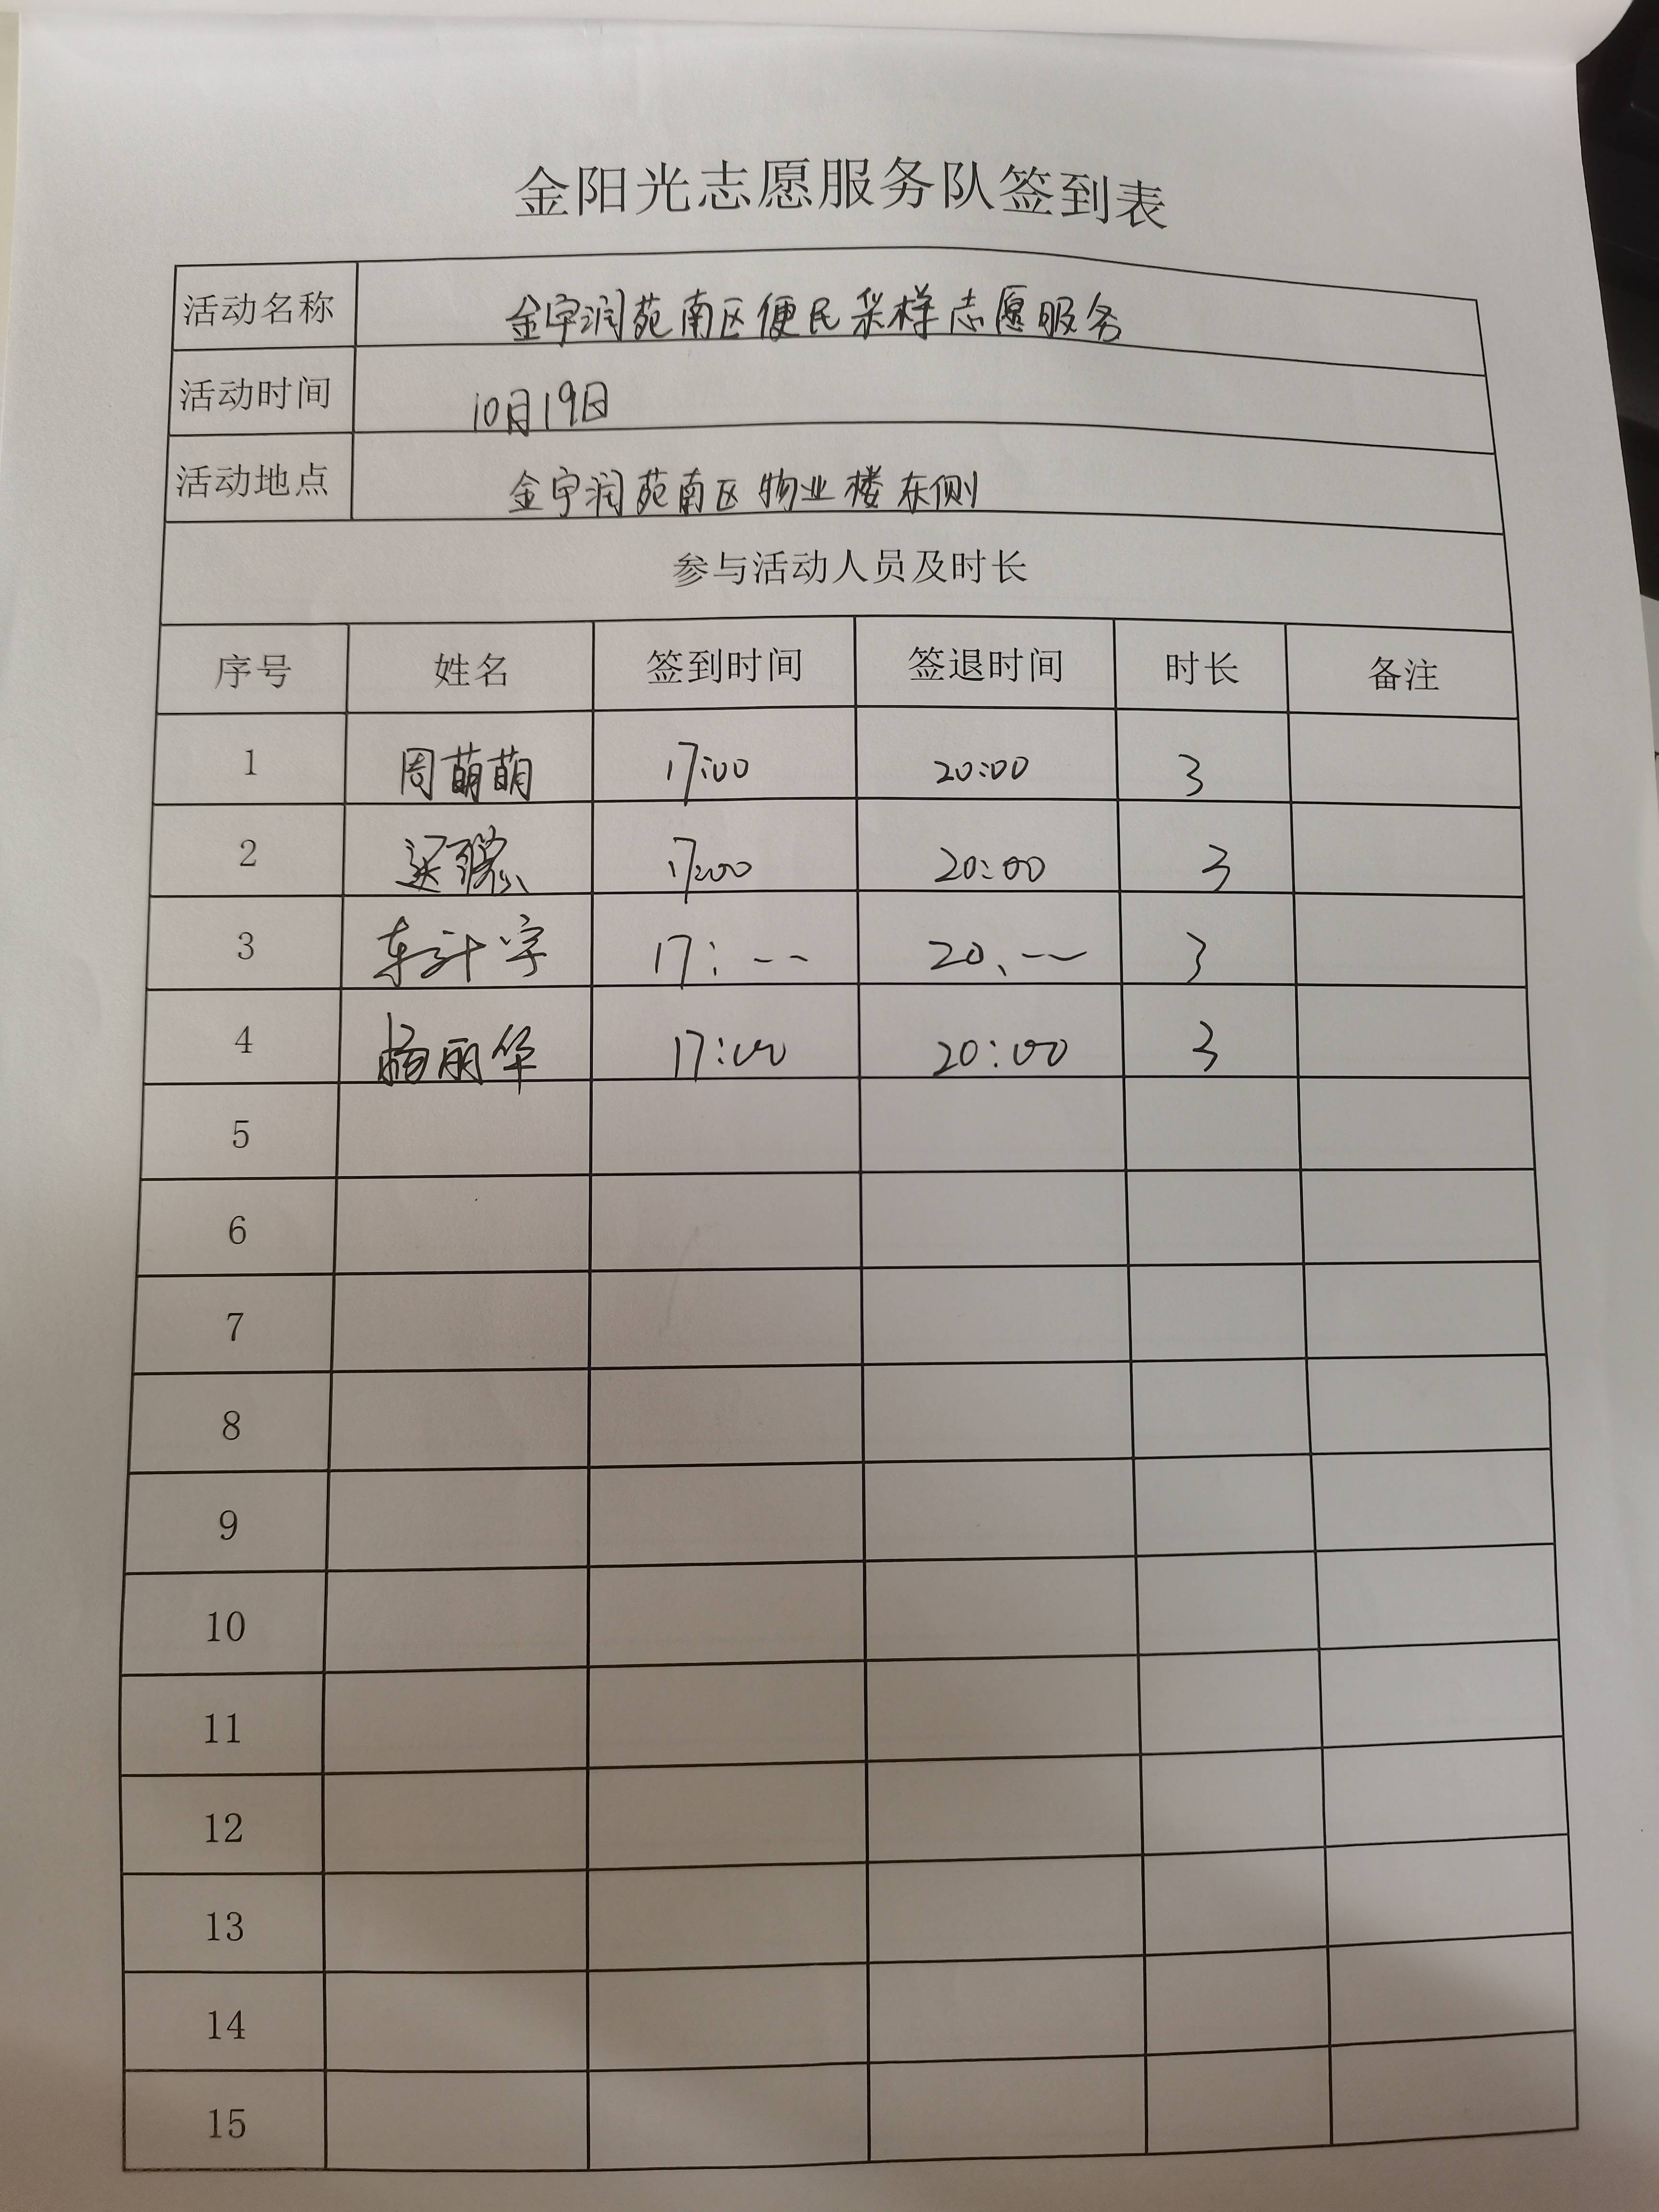 金阳光志愿服务队签到表
活动名称 金宇润苑南区便民采样志愿服务
活动时间 10月19日
活动地点 金宇润苑南区物业楼东侧
参与活动人员及时长
序号 姓名 签到时间 签退时间 时长 备注
1 周萌萌 17:00 20:00 3
2 17:00 20:00 3
3 17:-- 20、-- 3
4 杨丽华 17:00 20:00 3
5
6
7
8
9
10
11
12
13
14
15